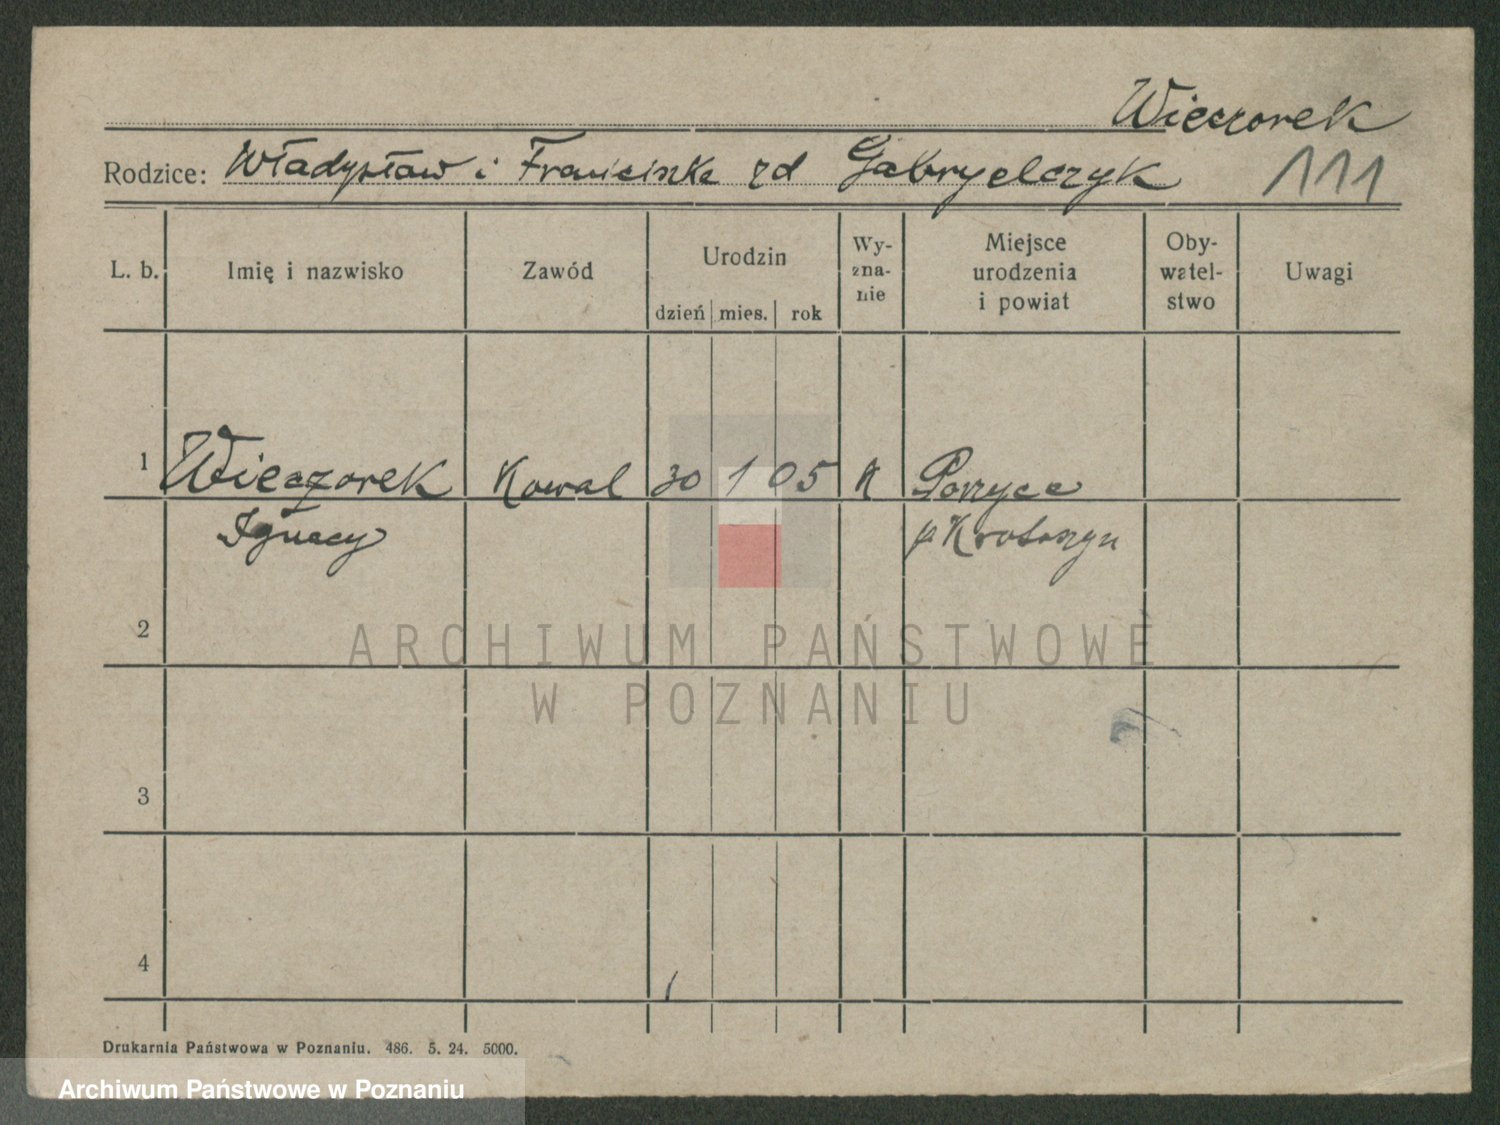 Wieczorek
Rodzice: Władysław i Franciszka zd Gabryelczyk 111
L. b. Imię i nazwisko Zawód Urodzin Wy- Miejsce Oby- Uwagi
zna- urodzenia watel-
nie i powiat stwo
dzień mies. rok
1 Wieczorek Kowal 30 1 05 K
Ignacy p Krotoszyn
2
ARCHIWUM PAŃSTWOWE
W POZNANIU
3
4
Drukarnia Państwowa w Poznaniu. 486. 5. 24. 5000.
Archiwum Państwowe w Poznaniu